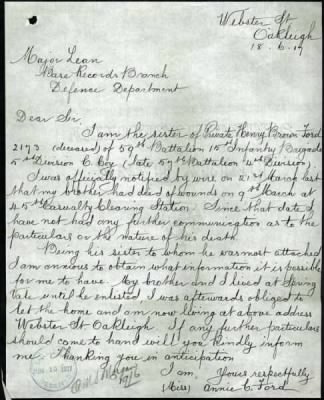 Webster St
Oakleigh
18.6.17
Major Lean
Base Records Branch
Defence Department
Dear Sir,
I am the sister of Private Henry Brown Ford
2173 (deceased) of 59th Battalion 15th Infantry Brigade
5th Division C Coy (late 57th Battalion 4th Division).
I was officially notified by wire on 21st March last
that my brother had died of wounds on 9th March at
45th Casualty Clearing Station. Since that date I
have not had any further communication as to the
particulars or the nature of his death.
Being his sister to whom he was most attached
I am anxious to obtain what information it is possible
for me to have. My brother and I lived at Spring
Vale until he enlisted I was afterwards obliged to
let the home and am now living at above address
Webster St Oakleigh. If any further particulars
should come to hand will you kindly inform
me. Thanking you in anticipation
I am. Yours respectfully
(Miss) Annie C. Ford
19/6